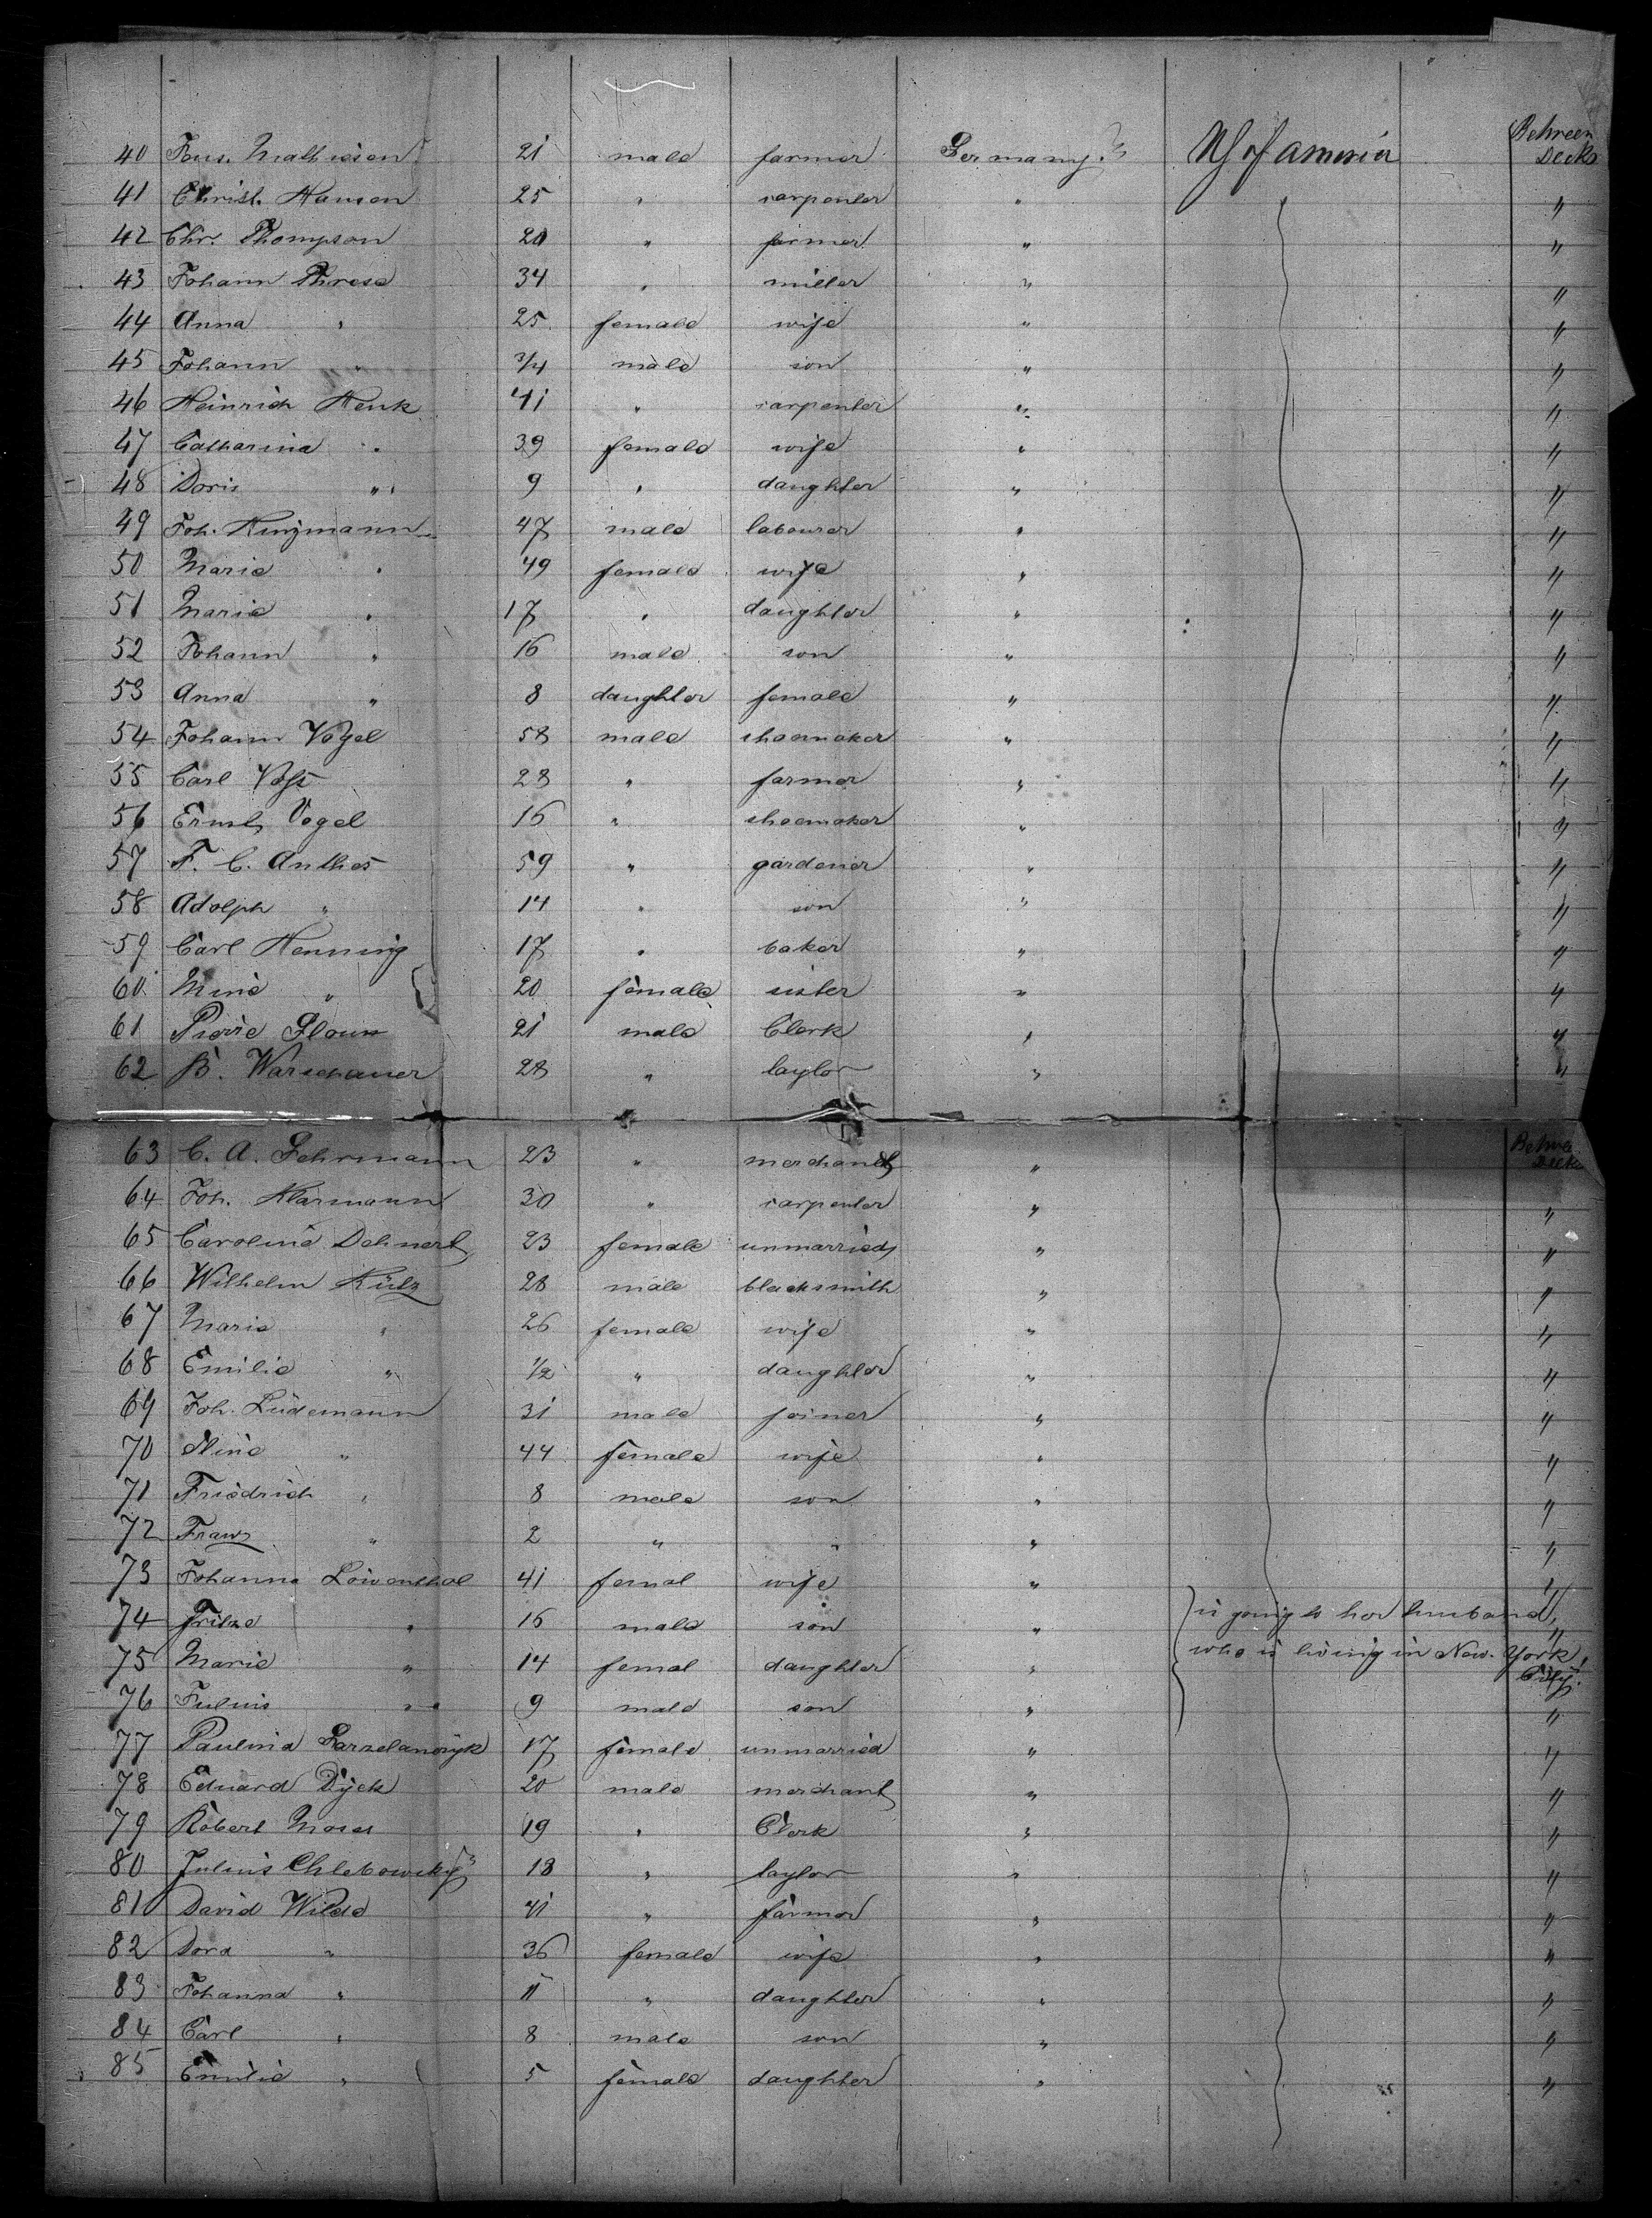 40 Jens. Mathiesen 21 male farmer Germany. US of America Between Decks
41 Christ. Hansen 25 " carpenter " "
42 Chr. Thompson 20 " farmer " "
43 Johann Threse 34 " miller " "
44 Anna " 25 female wife " "
45 Johann " 3/4 male son " "
46 Heinrich Henk 41 " carpenter " "
47 Catharina " 39 female wife " "
48 Doris " 9 " daughter " "
49 Joh. Kinzmann 47 male labourer " "
50 Marie " 49 female wife " "
51 Marie " 17 " daughter " "
52 Johann " 16 male son " "
53 Anna " 8 daughter female " "
54 Johann Vogel 58 male shoemaker " "
55 Carl 28 " farmer " "
56 Ernst Vogel 16 " shoemaker " "
57 F. C. Anthes 59 " gardener " "
58 Adolph " 14 " son " "
59 Carl Henning 17 " baker " "
60 Mine " 20 female sister " "
61 21 male Clerk " "
62 B. Warschauer 28 " taylor " "
63 C. A. Gehrmann 23 " merchant " Between Decks
64 Joh. Klarmann 30 " carpenter " "
65 Caroline Dehnert 23 female unmarried " "
66 Wilhelm Külz 28 male blacksmith " "
67 Marie " 26 female wife " "
68 Emilie " 1/2 " daughter " "
69 Joh. Lüdemann 31 male joiner " "
70 Mine " 44 female wife " "
71 Friedrich " 8 male son " "
72 Franz " 2 " " " "
73 Johanna Löwenthal 41 femal wife " "
74 Fritze " 16 male son " is going to her husband, "
75 Marie " 14 femal daughter " who is living in New-York City.
76 Julius " 9 male son " "
77 Paulina 17 female unmarried " "
78 Eduard Dyck 20 male merchant " "
79 Robert Moses 19 " Clerk " "
80 Julius Chlebowsky 18 " taylor " "
81 David Wilde 41 " farmer " "
82 Dora " 36 female wife " "
83 Johanna " 11 " daughter " "
84 Carl " 8 male son " "
85 Emilie " 5 female daughter " "